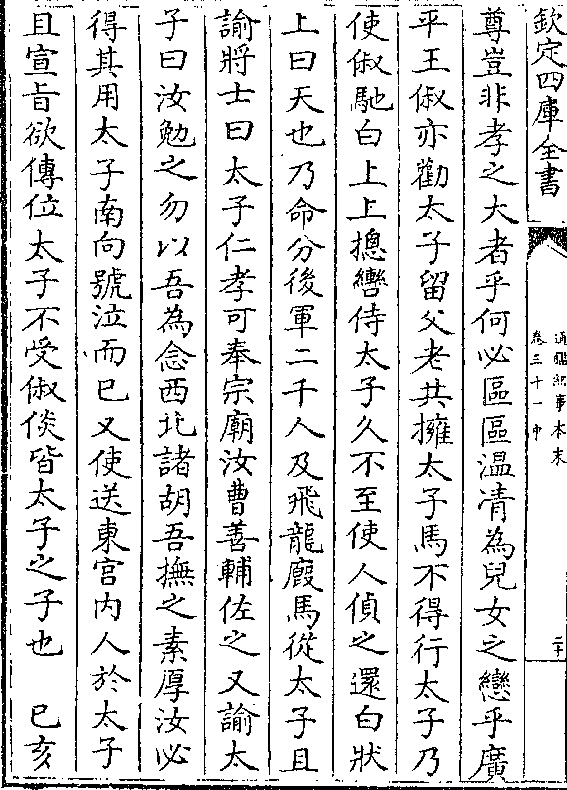 欽定四庫全書
通鑑紀事本末
卷三十一中
二十
尊豈非孝之大者乎何必區區温凊為兒女之戀乎廣
平王俶亦勸太子留父老共擁太子馬不得行太子乃
使俶馳白上上摠轡侍太子久不至使人偵之還白狀
上曰天也乃命分後軍二千人及飛龍廏馬從太子且
諭將士曰太子仁孝可奉宗廟汝曹善輔佐之又諭太
子曰汝勉之勿以吾為念西北諸胡吾撫之素厚汝必
得其用太子南向號泣而已又使送東宮内人於太子
且宣㫖欲傳位太子不受俶倓皆太子之子也　已亥